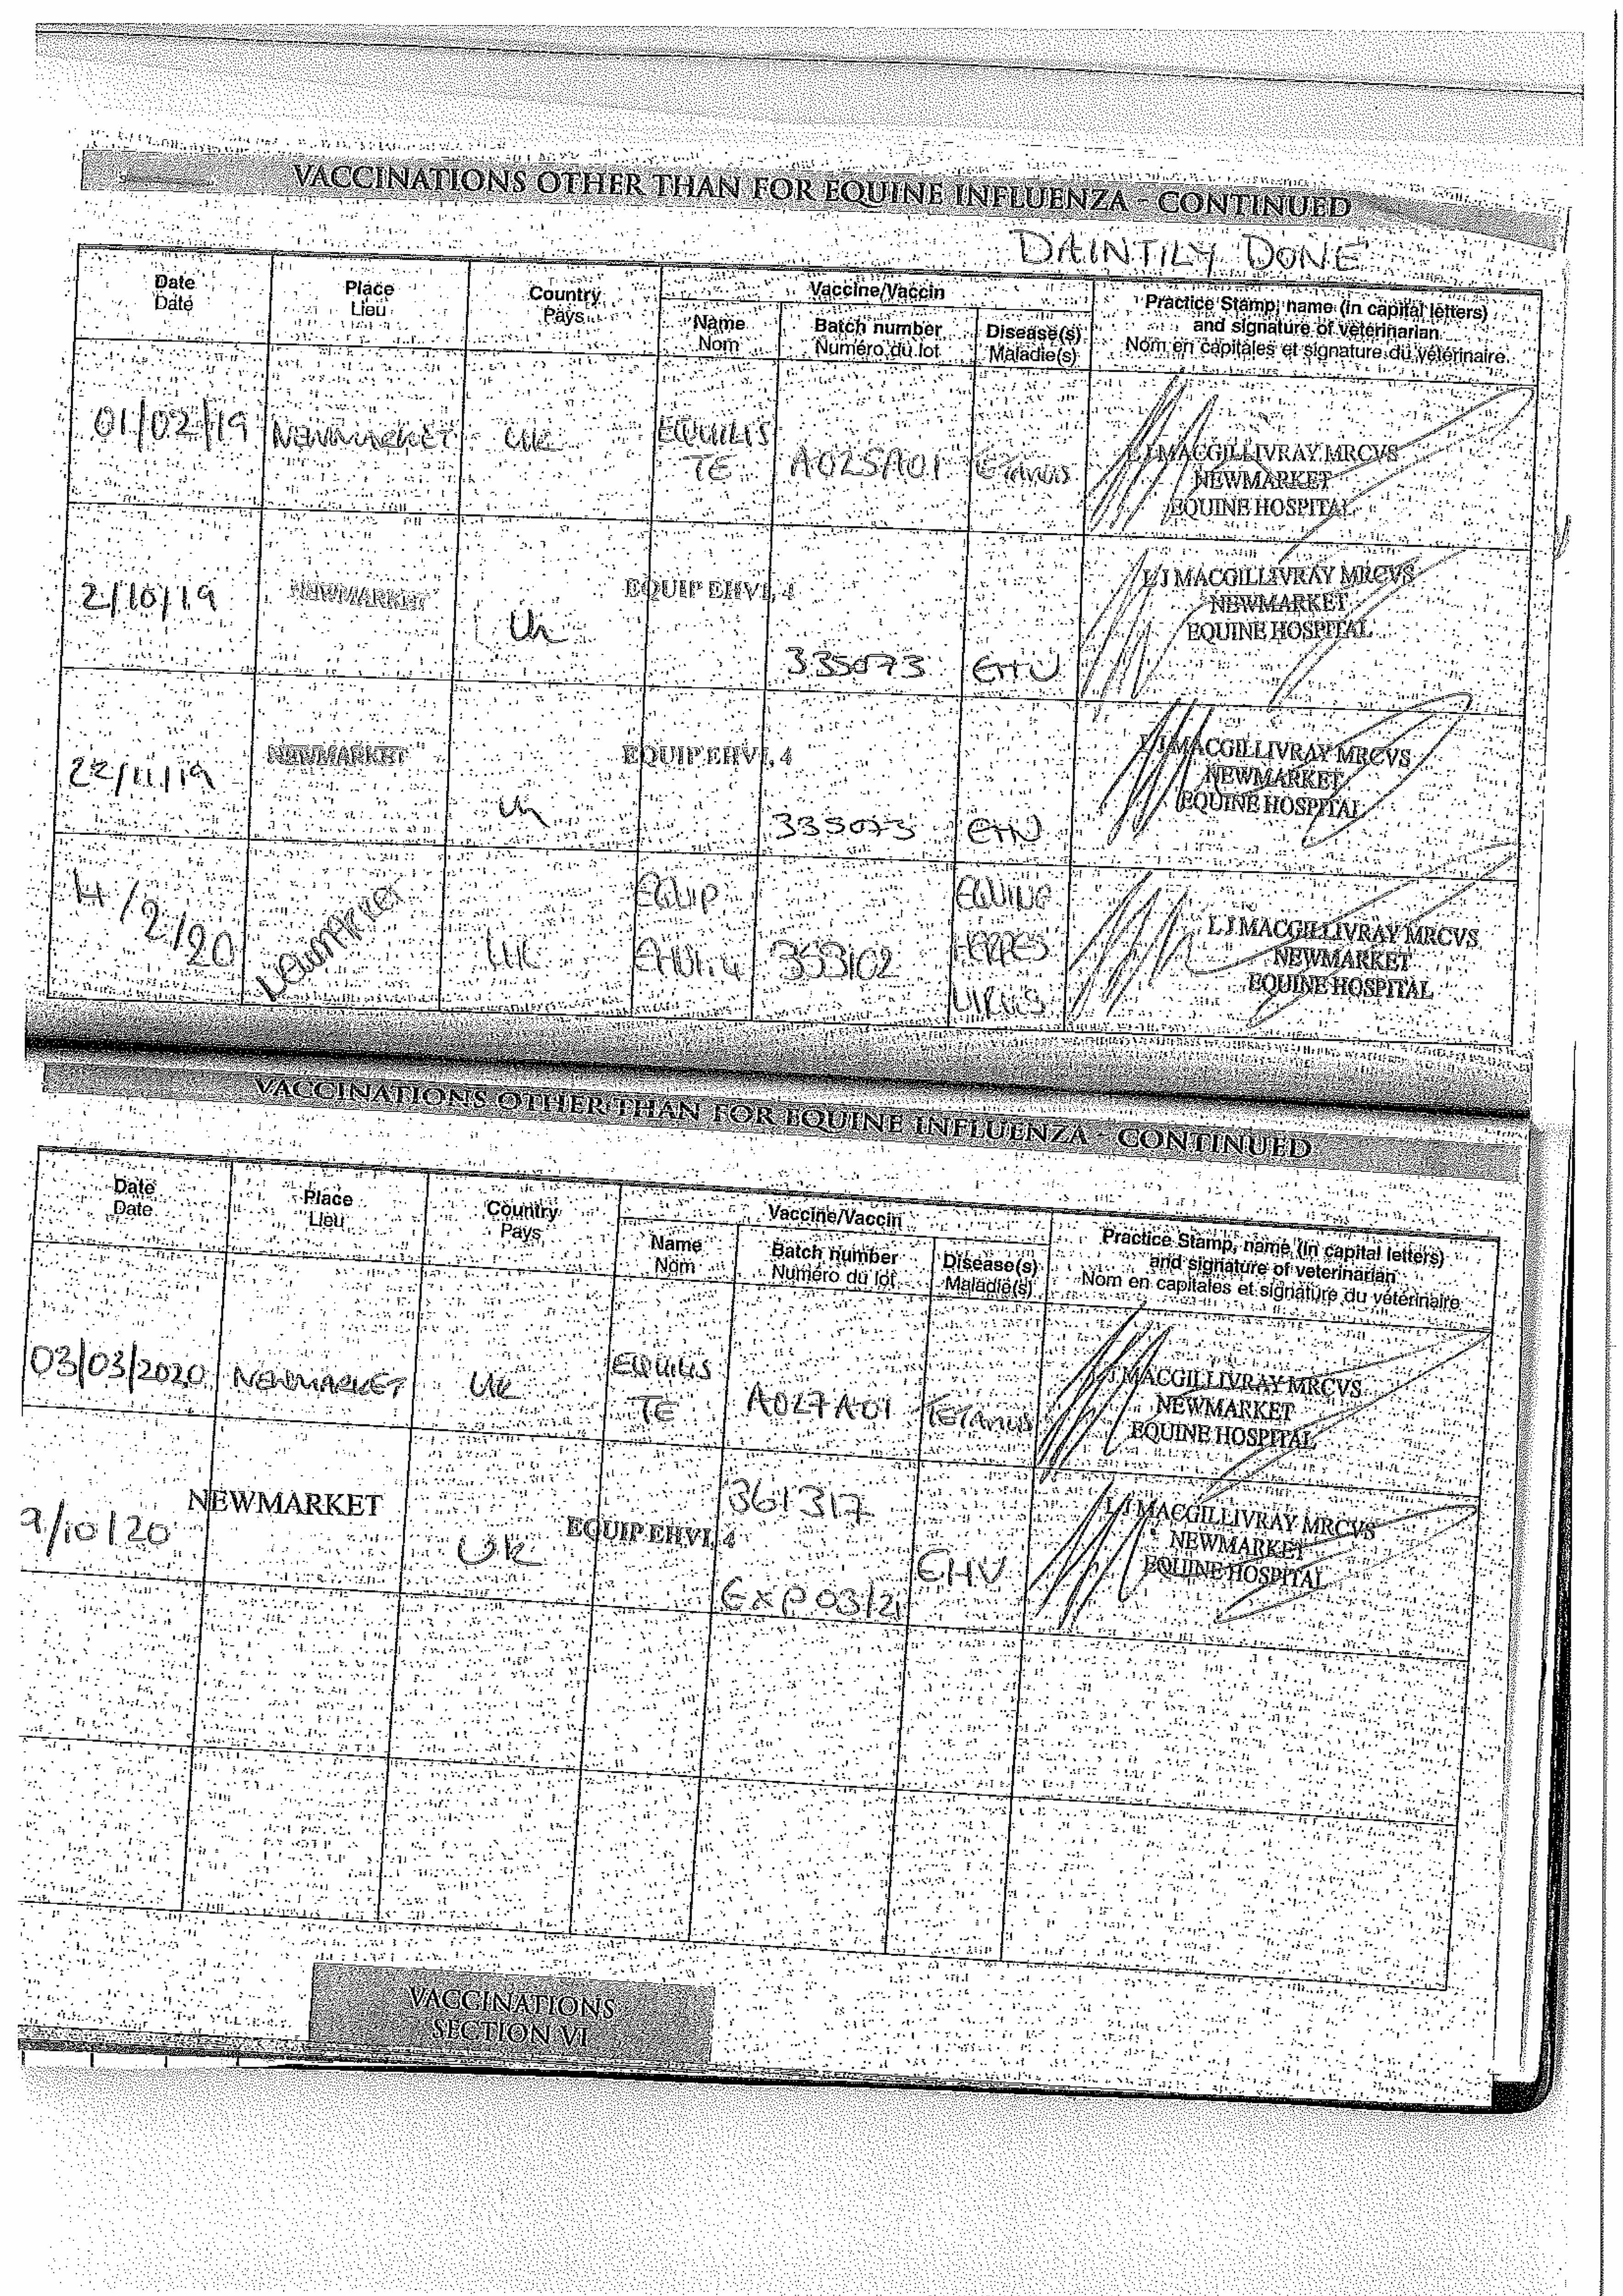 VACCINATIONS OTHER THAN FOR EQUINE INFLUENZA - CONTINUED
DAINTILY DONE
Date
Date
Place
Lieu
Country
Pays
Vaccine/Vaccin
Name
Nom
Batch number
Numéro du lot
Disease(s)
Maladie(s)
Practice Stamp, name (in capital letters)
and signature of veterinarian
Nom en capitales et signature du vétérinaire
01/02/19 NEWMARKET UK EQUILIS
TE A025A01 TETANUS
L J MACGILLIVRAY MRCVS
NEWMARKET
EQUINE HOSPITAL
2/10/19 NEWMARKET UK EQUIP EHV1,4
335073 EHV
L J MACGILLIVRAY MRCVS
NEWMARKET
EQUINE HOSPITAL
22/11/19 NEWMARKET UK EQUIP EHV1,4
335073 EHV
L J MACGILLIVRAY MRCVS
NEWMARKET
EQUINE HOSPITAL
4/2/20 NEWMARKET UK EQUIP
EHV1.4 353102 EQUINE
HERPES
VIRUS
L J MACGILLIVRAY MRCVS
NEWMARKET
EQUINE HOSPITAL
VACCINATIONS OTHER THAN FOR EQUINE INFLUENZA - CONTINUED
Date
Date
Place
Lieu
Country
Pays
Vaccine/Vaccin
Name
Nom
Batch number
Numéro du lot
Disease(s)
Maladie(s)
Practice Stamp, name (in capital letters)
and signature of veterinarian
Nom en capitales et signature du vétérinaire
03/03/2020 NEWMARKET UK EQUILIS
TE A027A01 TETANUS
L J MACGILLIVRAY MRCVS
NEWMARKET
EQUINE HOSPITAL
9/10/20 NEWMARKET UK EQUIP EHV1,4
361317
EXP 03/21 EHV
L J MACGILLIVRAY MRCVS
NEWMARKET
EQUINE HOSPITAL
VACCINATIONS
SECTION VI